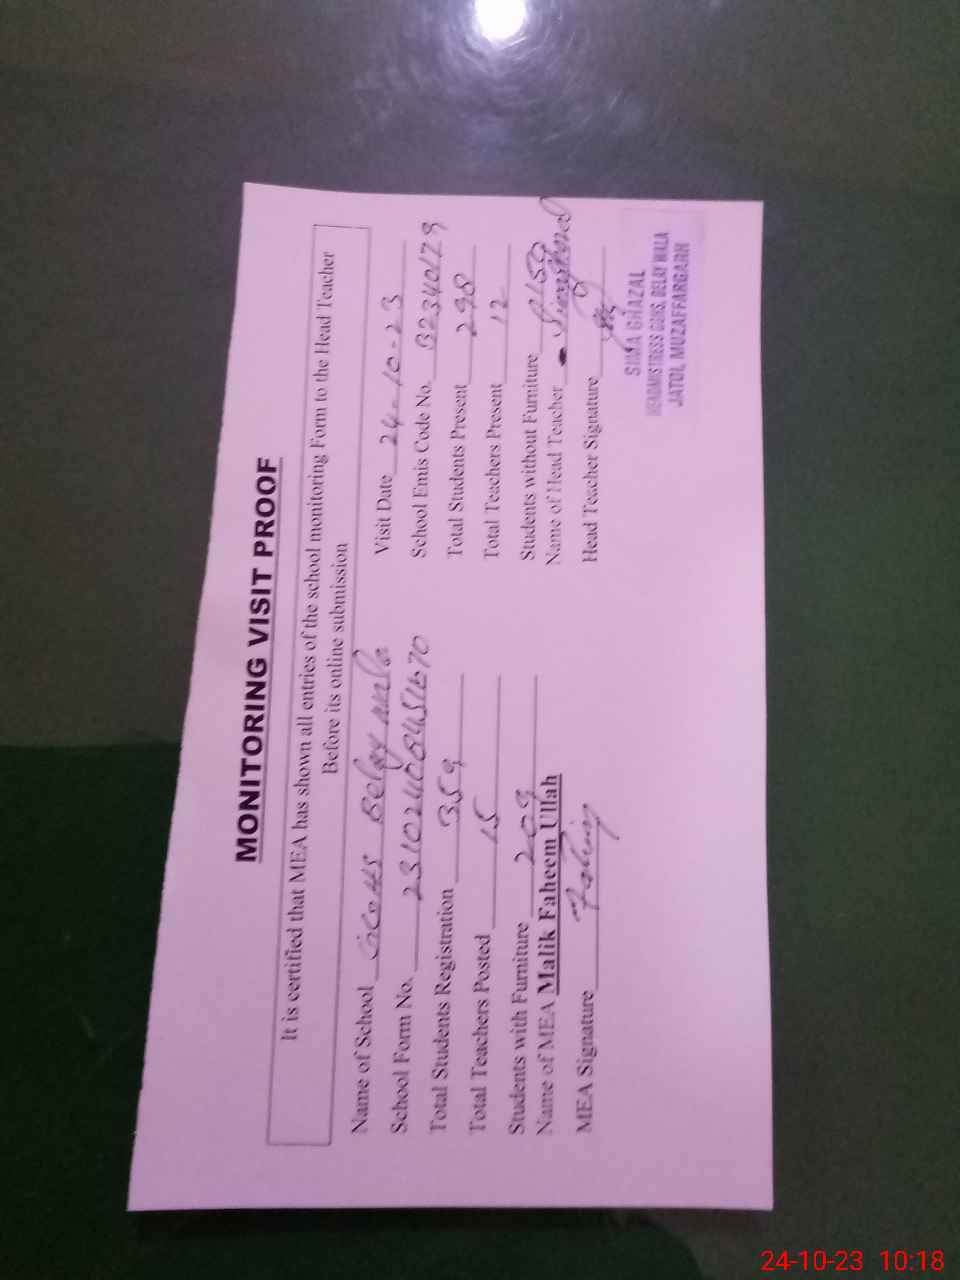 MONITORING VISIT PROOF
It is certified that MEA has shown all entries of the school monitoring Form to the Head Teacher
Before its online submission
Name of School Belay wala
Visit Date 24-10-23
School Form No.
School Emis Code No. 32340129
Total Students Registration 359
Total Students Present 298
Total Teachers Posted 15
Total Teachers Present 12
Students with Furniture 209
Students without Furniture 150
Name of MEA Malik Faheem Ullah
Name of Head Teacher
MEA Signature Fahim
Head Teacher Signature
SIMA GHAZAL
HEADMISTRESS GGHS, BELAY WALA
JATOI, MUZAFFARGARH
24-10-23 10:18